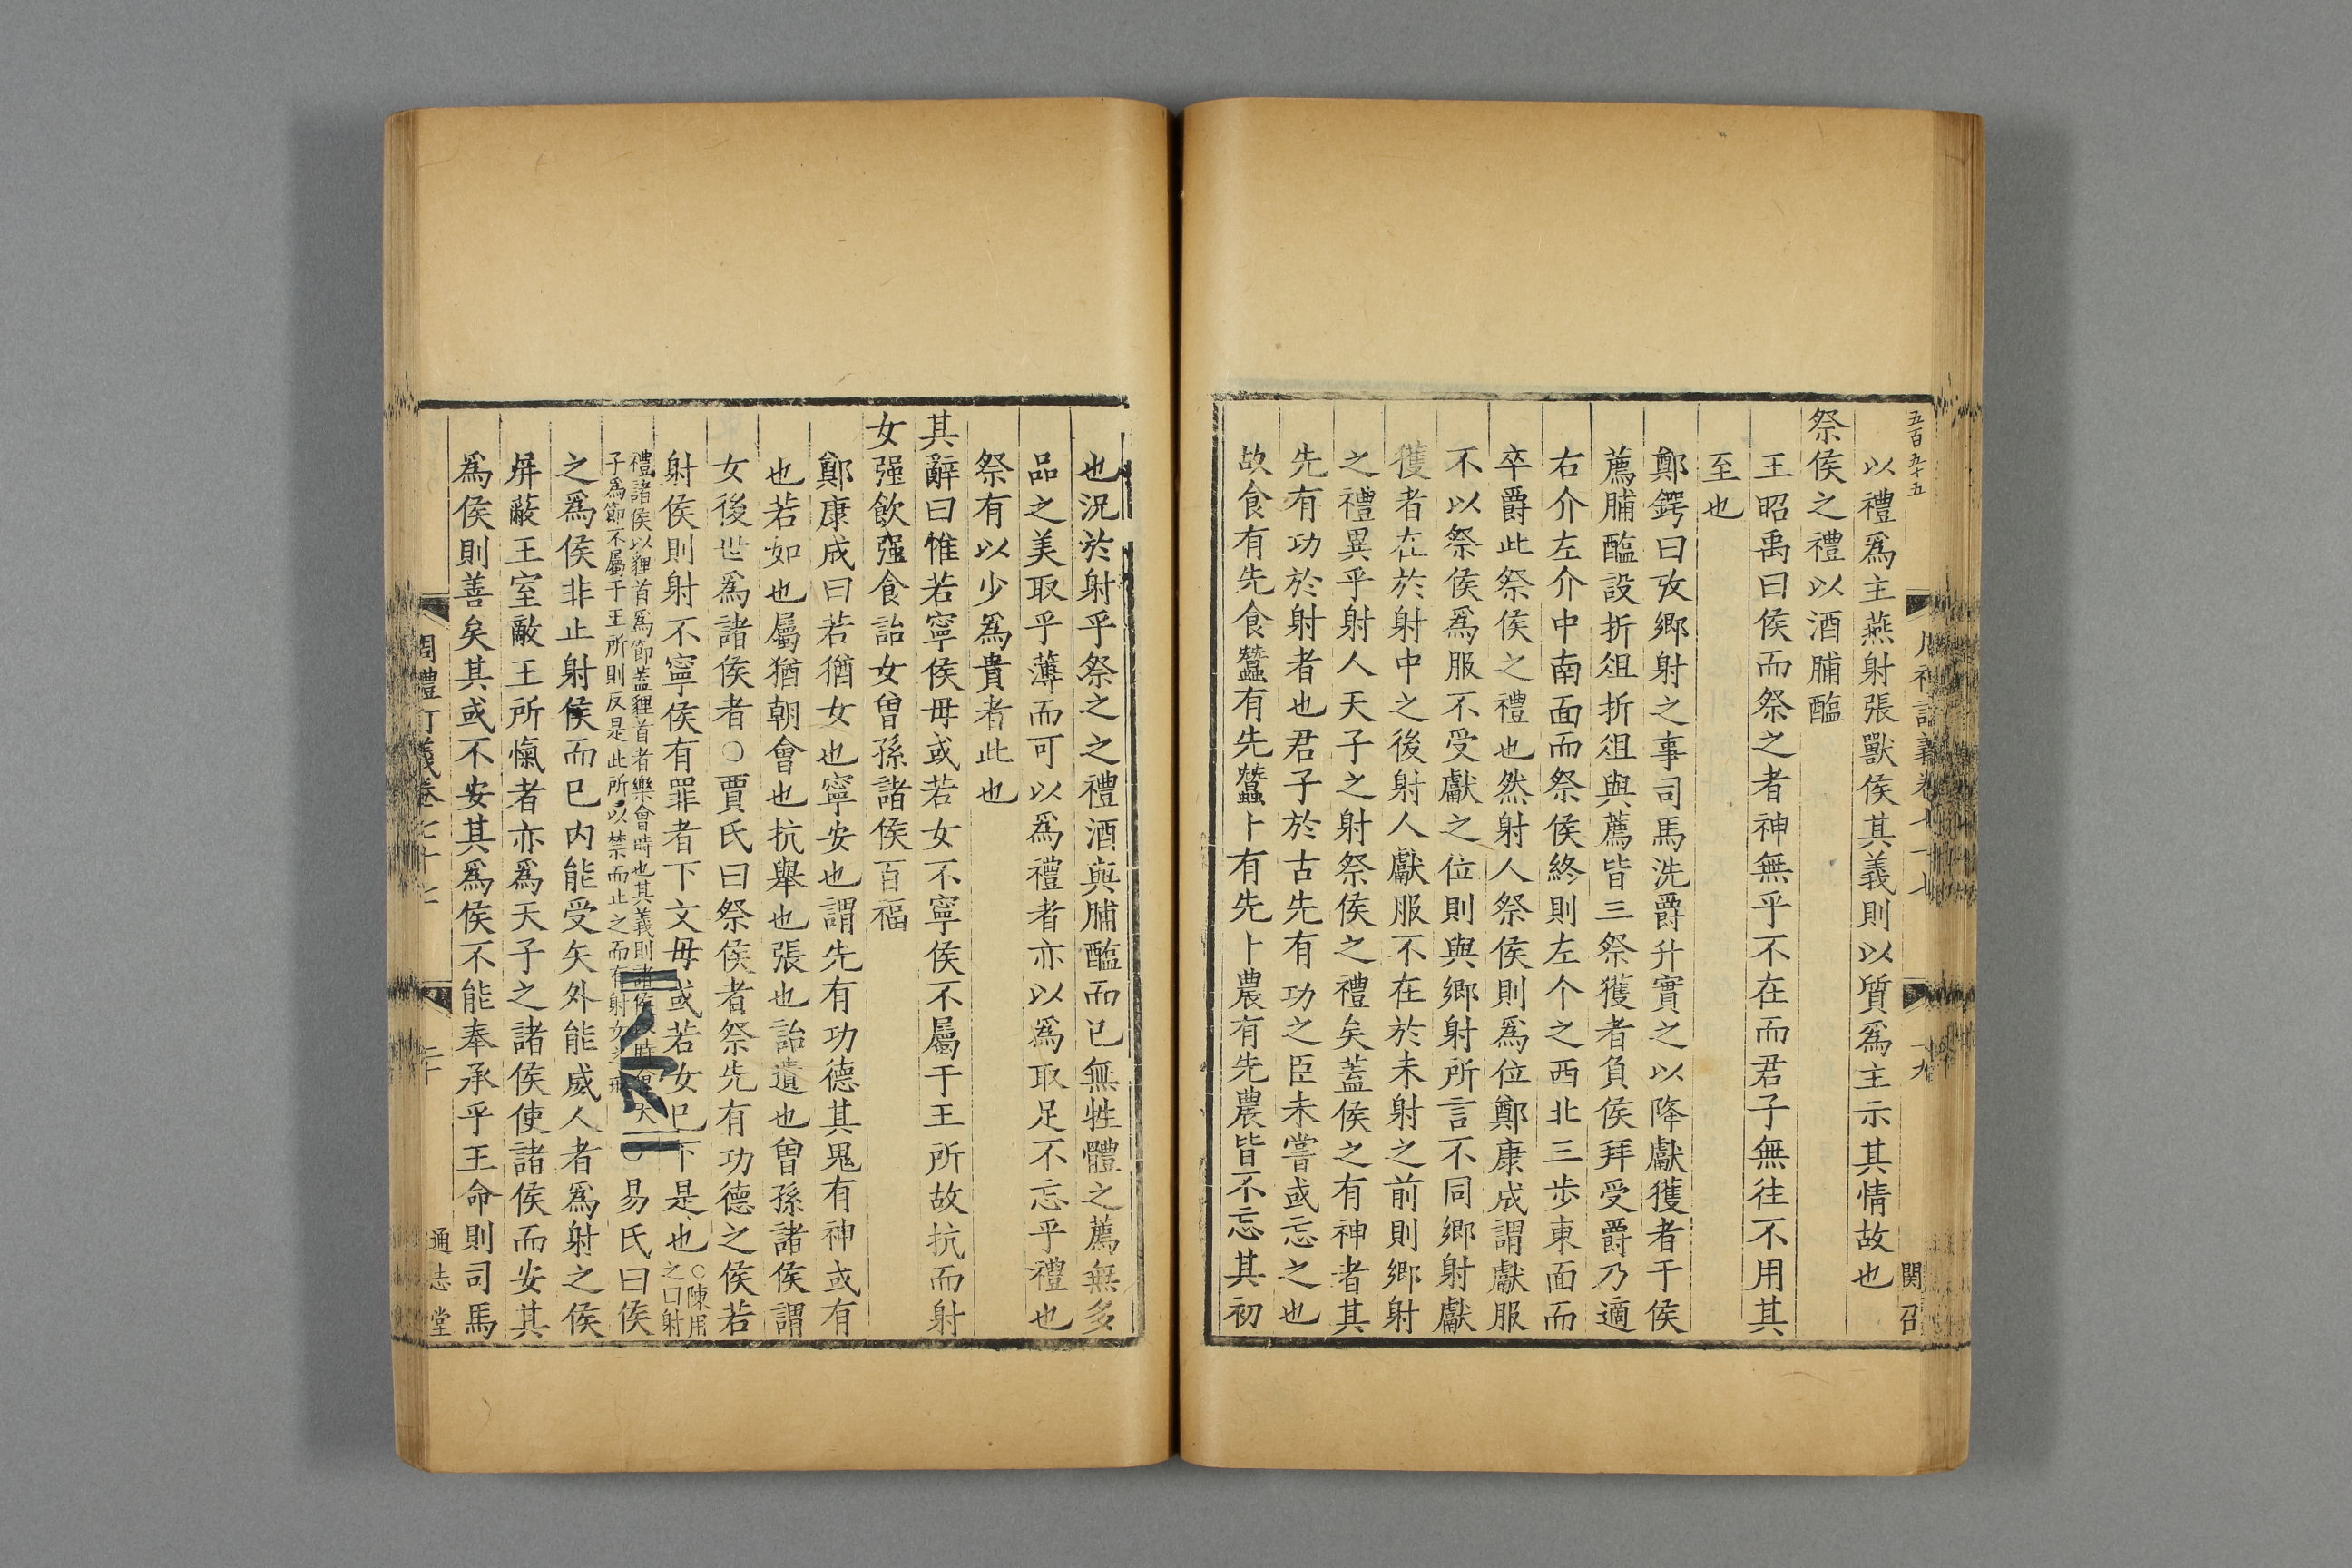 五百九十五
以禮爲主燕射張獸侯其義則以質爲主示其情故也
祭侯之禮以酒脯醢
王昭禹曰侯而祭之者神無乎不在而君子無往不用其
至也
鄭鍔曰攷鄉射之事司馬洗爵升實之以降獻獲者于侯
薦脯醢設折俎折俎與薦皆三祭獲者負侯拜受爵乃適
右介左介中南面而祭侯終則左个之西北三步東面而
卒爵此祭侯之禮也然射人祭侯則爲位鄭康成謂獻服
不以祭侯爲服不受獻之位則與鄉射所言不同鄉射獻
獲者在於射中之後射人獻服不在於未射之前則鄉射
之禮異乎射人天子之射祭侯之禮矣蓋侯之有神者其
先有功於射者也君子於古先有功之臣未嘗或忘之也
故食有先食蠶有先蠶卜有先卜農有先農皆不忘其初
關召
也況於射乎祭之之禮酒與脯醢而已無牲體之薦無多
品之美取乎薄而可以爲禮者亦以爲取足不忘乎禮也
祭有以少爲貴者此也
其辭曰惟若寧侯毋或若女不寧侯不屬于王所故抗而射
女强飲强食詒女曾孫諸侯百福
鄭康成曰若猶女也寧安也謂先有功德其鬼有神或有
也若如也屬猶朝會也抗舉也張也詒遺也曾孫諸侯謂
女後世爲諸侯者○賈氏曰祭侯者祭先有功德之侯若
射侯則射不寧侯有罪者下文毋或若女已下是也○陳用之曰射
禮諸侯以貍首爲節蓋貍首者樂會時也其義則諸侯
子爲節不屬于王所則反是此所以禁而止之而有射女之
○易氏曰侯
之爲侯非止射侯而已内能受矢外能威人者爲射之侯
屏蔽王室敵王所愾者亦爲天子之諸侯使諸侯而安其
爲侯則善矣其或不安其爲侯不能奉承乎王命則司馬
周禮訂義卷七十七
二十
通志堂